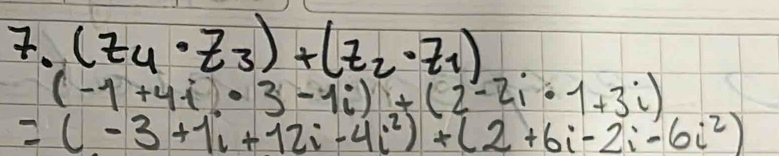 7. (z₄ · z₃) + (z₂ · z₁)
(-1 + 4i · 3 - 1i) + (2 - 2i · 1 + 3i)
= (-3 + 1i + 12i - 4i²) + (2 + 6i - 2i - 6i²)